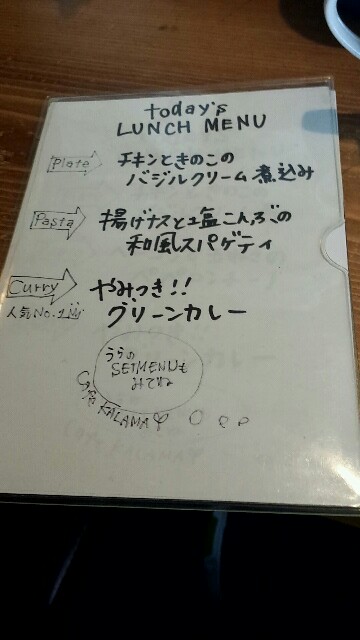 today's
LUNCH MENU
Plate
チキンときのこの
バジルクリーム煮込み
Pasta
揚げナスと塩こんぶの
和風スパゲティ
Curry
人気No.1
やみつき!!
グリーンカレー
うらの
SETMENUも
みてね
CAFE KALAMA